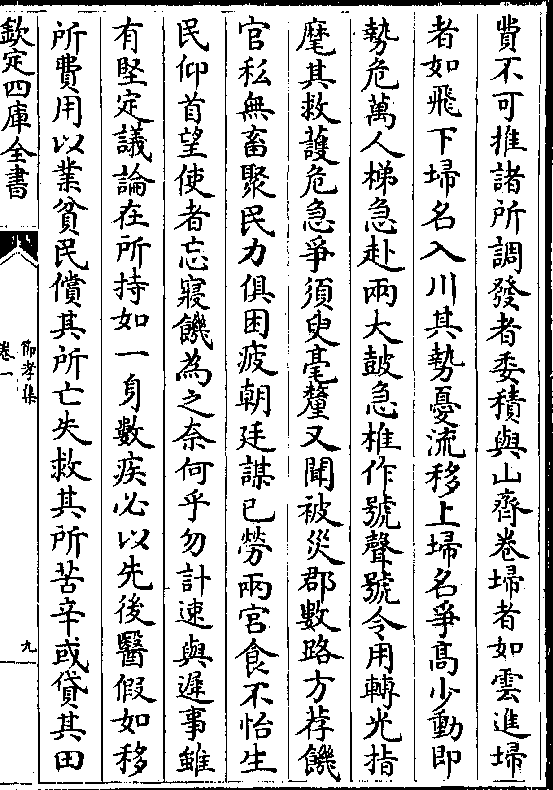 費不可推諸所調發者委積與山齊卷埽者如雲進埽
者如飛下埽名入川其勢憂流移上埽名爭髙少動即
勢危萬人梯急赴兩大鼓急椎作號聲號令用轉光指
麾其救䕶危急爭須㬰毫釐又聞被災郡數路方荐饑
官私無畜聚民力俱困疲朝廷謀已勞兩宫食不怡生
民仰首望使者忘寢饑為之奈何乎勿計速與遲事雖
有堅定議論在所持如一身數疾必以先後醫假如移
所費用以業貧民償其所亡失救其所苦辛或貸其田
欽定四庫全書
節孝集
卷一
九